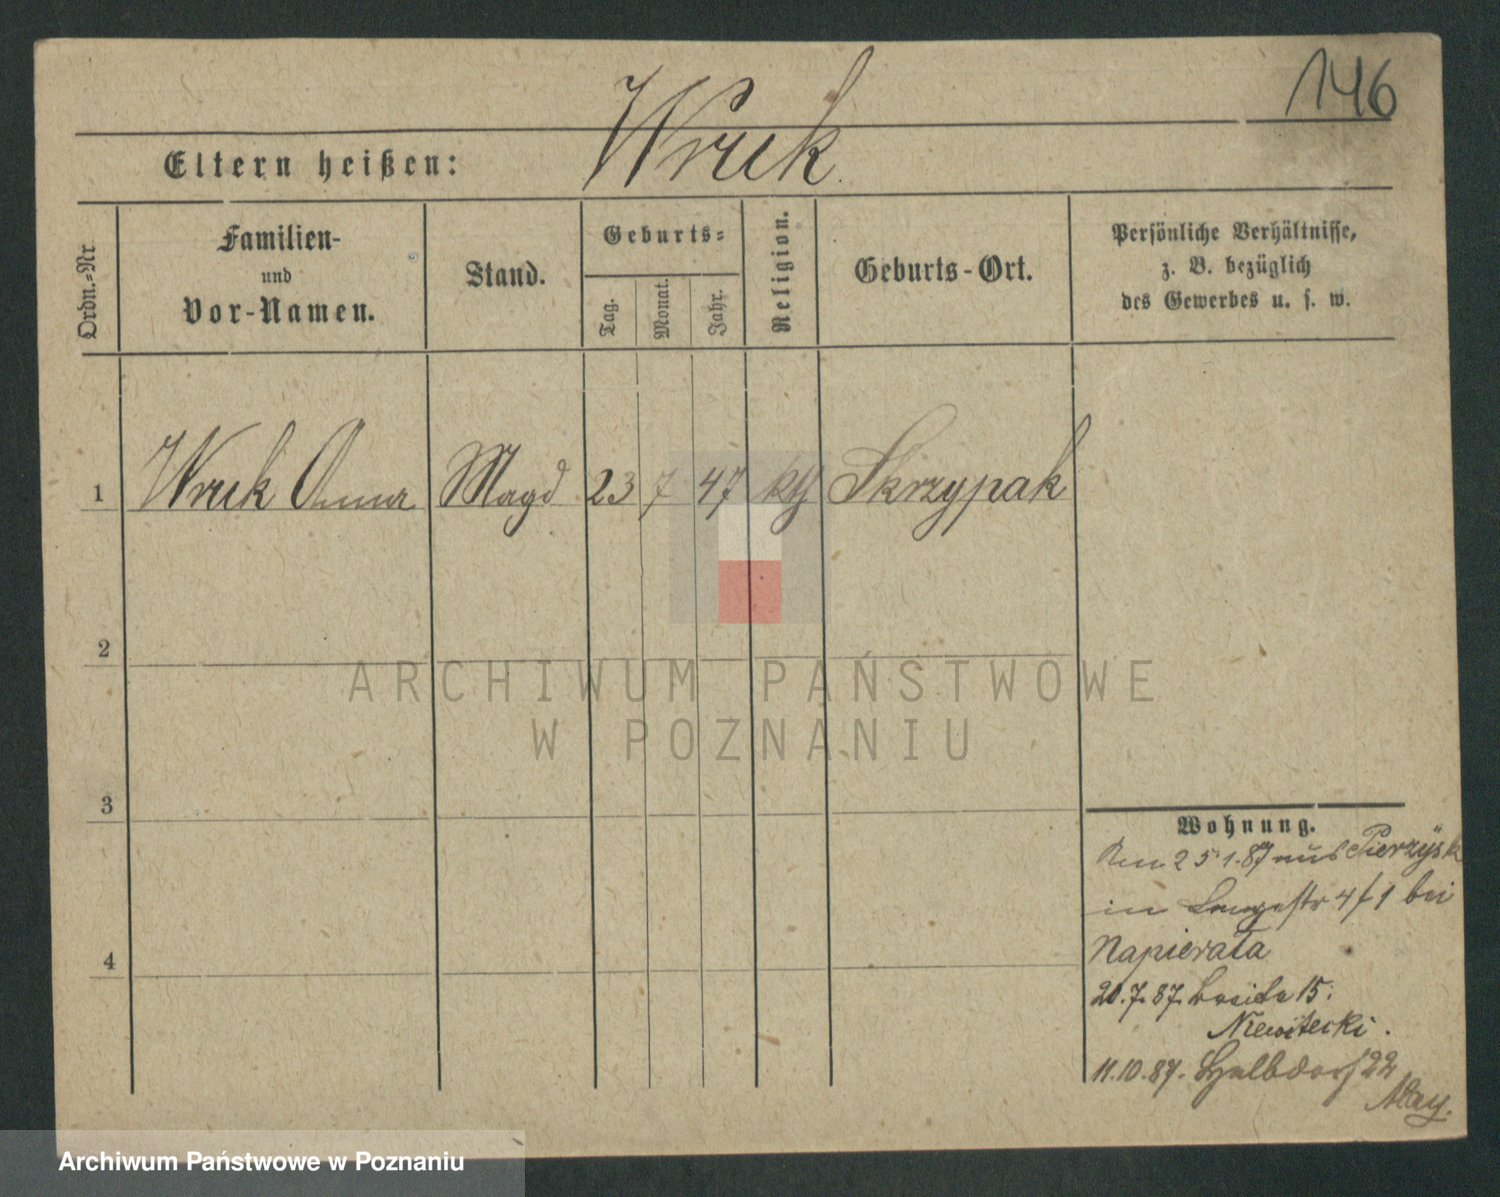 146
Wruk
Eltern heißen:
Ordn.-Nr
Familien-
und
Vor-Namen.
Stand.
Geburts-
Tag.
Monat.
Jahr.
Religion.
Geburts-Ort.
Persönliche Verhältnisse,
z. B. bezüglich
des Gewerbes u. s. w.
1 Wruk Anna Magd 23 7 47 kth Skrzypak
2
3
4
Wohnung.
Am 25 1.87 aus Pierzysk
in Langestr 4/1 bei
Napierała
20.7.87. Breite 15.
Niewitecki.
11.10.87. Halbdorf 22
May.
ARCHIWUM PAŃSTWOWE
W POZNANIU
Archiwum Państwowe w Poznaniu